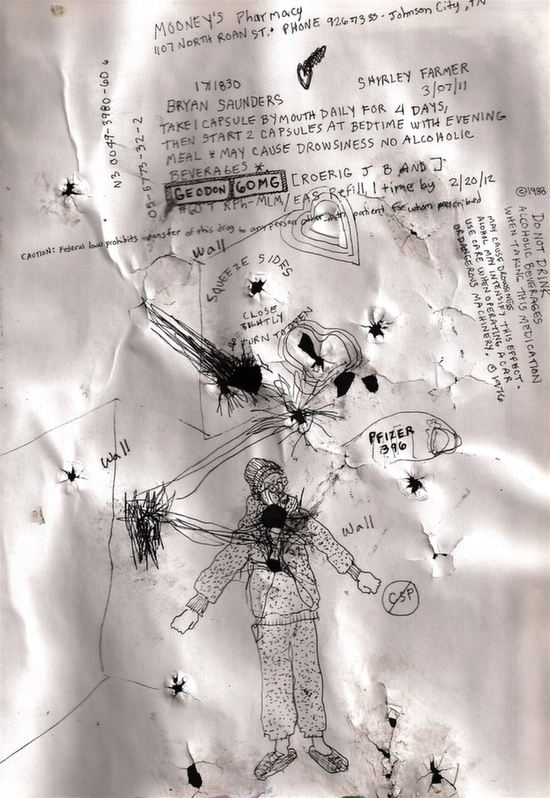 MOONEY'S PHARMACY
1107 NORTH ROAN ST. • PHONE 9267333 - Johnson City, TN
N3 0049-3980-60 6
171830
SHIRLEY FARMER
3/07/11
BRYAN SAUNDERS
TAKE 1 CAPSULE BY MOUTH DAILY FOR 4 DAYS,
THEN START 2 CAPSULES AT BEDTIME WITH EVENING
MEAL * MAY CAUSE DROWSINESS NO ALCOHOLIC
BEVERAGES *
GEODON 60MG [ROERIG J B AND]
#60 T RPh-MLM/EAS Refill 1 time by 2/20/12
05-5773-32-2
CAUTION: Federal law prohibits transfer of this drug to any person other than patient for whom prescribed
©1988
DO NOT DRINK
ALCOHOLIC BEVERAGES
WHEN TAKING THIS MEDICATION
MAY CAUSE DROWSINESS
ALCOHOL MAY INTENSIFY THIS EFFECT.
USE CARE WHEN OPERATING A CAR
OR DANGEROUS MACHINERY. ©1976
Wall
SQUEEZE SIDES
CLOSE
TIGHTLY
TURN TO OPEN
PFIZER
396
Wall
Wall
CSP